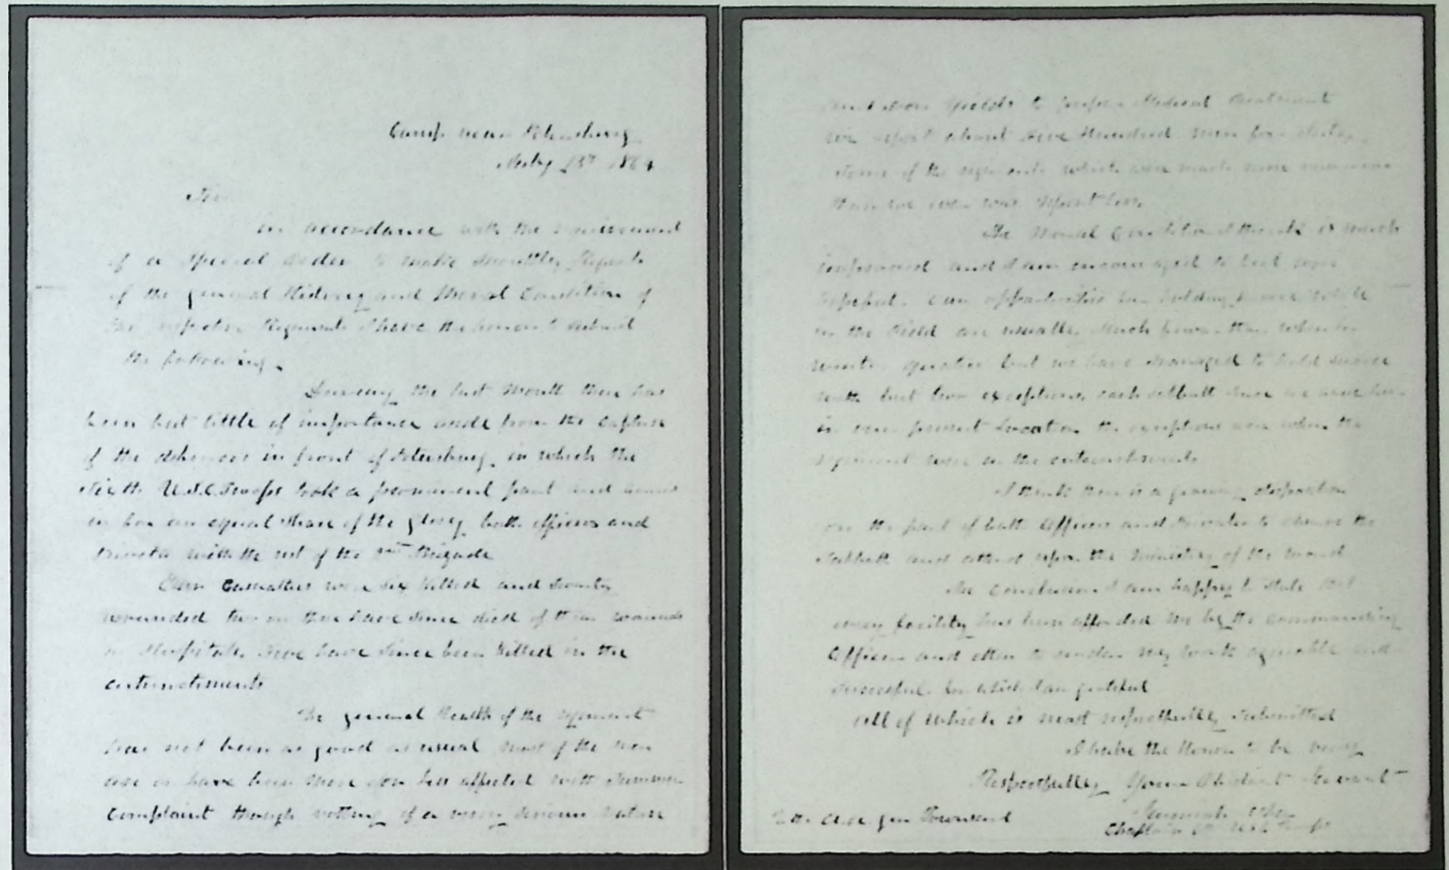 Camp near Petersburg
July 13th 1864
Sir
in accordance with the requirement
of a Special Order to make monthly Reports
of the general History and Moral Condition of
Regiment I have the honor to submit
the following.
During the last Month there has
been but little of importance aside from the capture
of the defences in front of Petersburg, in which the
Sixth U.S.C. Troops took a prominent part and
an equal share of the glory, both officers and
privates with the rest of the Brigade
Our Casualties were six killed and twenty
wounded two of them have since died of their wounds
in Hospital. Five have since been killed in the
entrenchments
The general health of the regiment
has not been as good as usual most of the men
are or have been more or less affected with Summer
Complaint though nothing of a very serious nature
yields to proper Medical treatment
we report about Five Hundred men for duty,
some of the regiments which were much more numerous
than we were now report less.
The Moral Condition I think is much
improved and I am encouraged to feel more
hopeful. Our opportunities for holding service while
in the Field are usually much fewer than when in
winter quarters but we have managed to hold service
with but two exceptions each sabbath since we have been
in our present Location the exceptions were when the
regiment were in the entrenchments
I think there is a growing disposition
on the part of both Officers and privates to observe the
Sabbath and attend upon the ministry of the word
In conclusion I am happy to state that
every facility has been afforded me by the commanding
Officer and others to render my work agreeable and
successful for which I am grateful
All of which is most respectfully submitted
I have the Honor to be very
Respectfully Your Obedient Servant
To the Adj. Gen Townsend
Jeremiah Asher
Chaplain 6th US C Troops